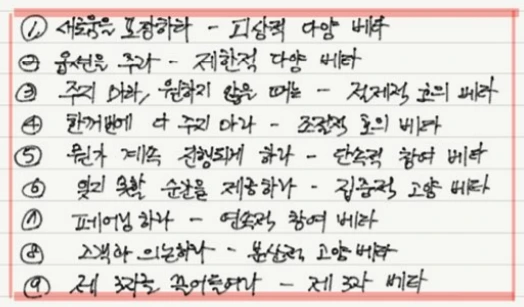 ① 새로움을 포장하라 - 피상적 다양 베타
② 옵션을 주라 - 제한적 다양 베타
③ 주지 마라, 원하지 않을 때는 - 절제적 호의 베타
④ 한꺼번에 다 주지 마라 - 조절적 호의 베타
⑤ 뭔가 계속 진행되게 하라 - 단속적 참여 베타
⑥ 잊지 못할 순간을 제공하라 - 집중적 고양 베타
⑦ 페어링 하라 - 연속적 참여 베타
⑧ 고객과 의논하라 - 분산적 고양 베타
⑨ 제 3자를 끌어들여라 - 제 3자 베타